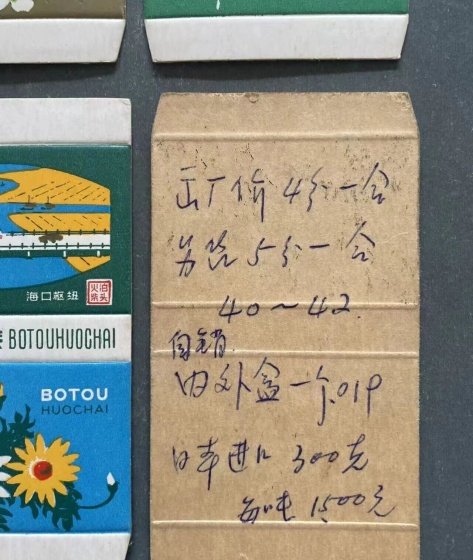 海口枢纽
泊头
火柴
BOTOUHUOCHAI
BOTOU
HUOCHAI
出厂价4分一合
另售5分一合
40~42
自销
内外盒一个.019
日本进口 300克
每吨1500元